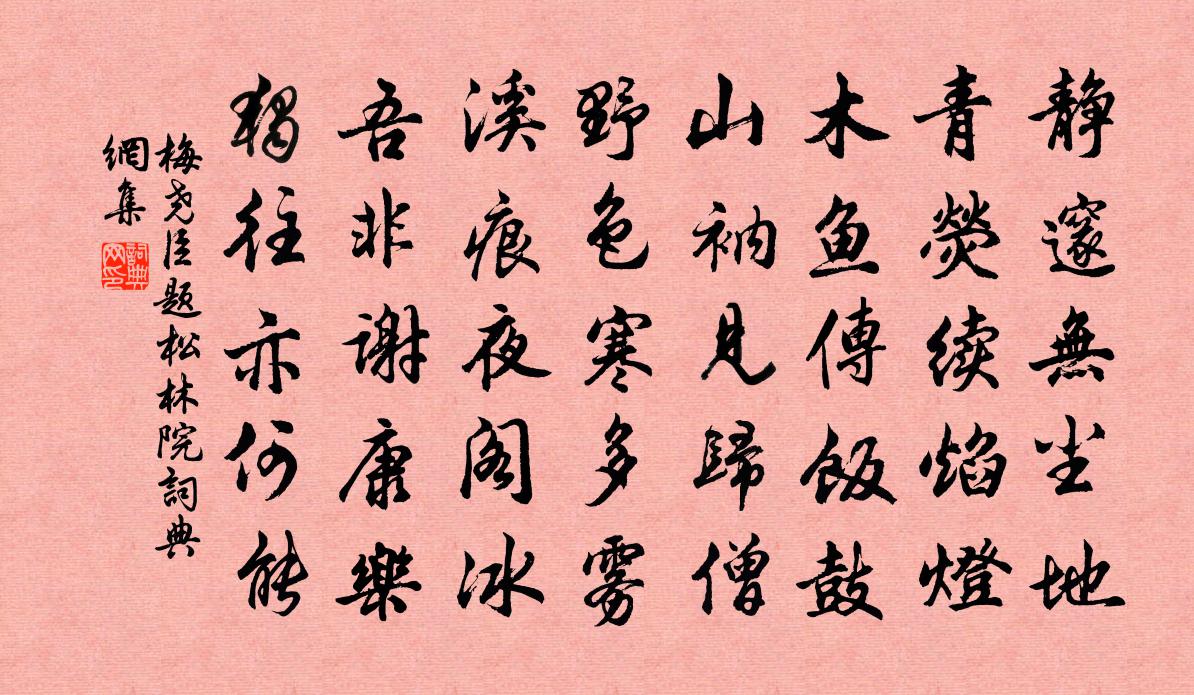 静邃無尘地
青熒续焰燈
木鱼傳飯鼓
山衲見歸僧
野色寒多雾
溪痕夜阁冰
吾非谢康樂
獨往亦何能
梅尧臣题松林院詞典
網集
詞典
网印